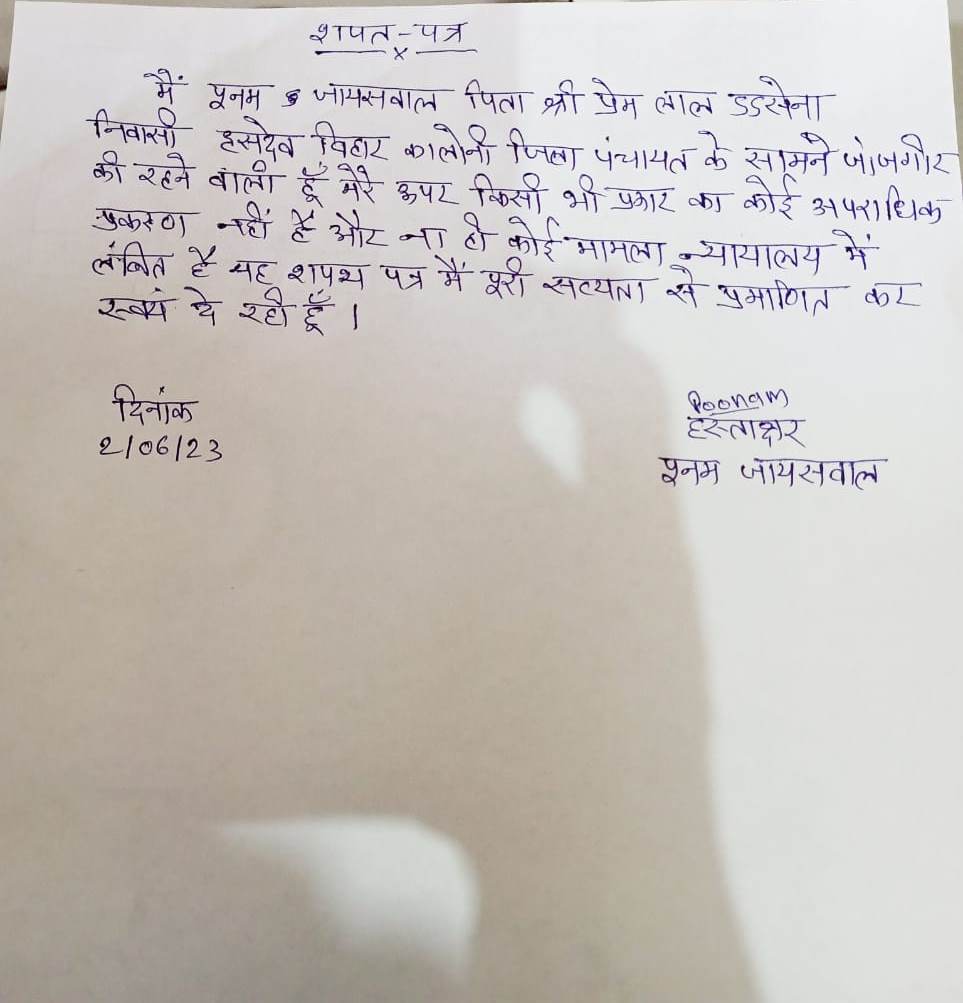 शपत-पत्र
x
मैं पूनम जायसवाल पिता श्री प्रेम लाल डडसेना
निवासी हसदेव विहार कालोनी जिला पंचायत के सामने जांजगीर
की रहने वाली हूँ मेरे ऊपर किसी भी प्रकार का कोई अपराधिक
प्रकरण नहीं है और ना ही कोई मामला न्यायालय में
लंबित है यह शपथ पत्र मैं पूरी सत्यता से प्रमाणित कर
स्वयं दे रही हूँ ।
दिनांक
2/06/23
Poonam
हस्ताक्षर
पूनम जायसवाल